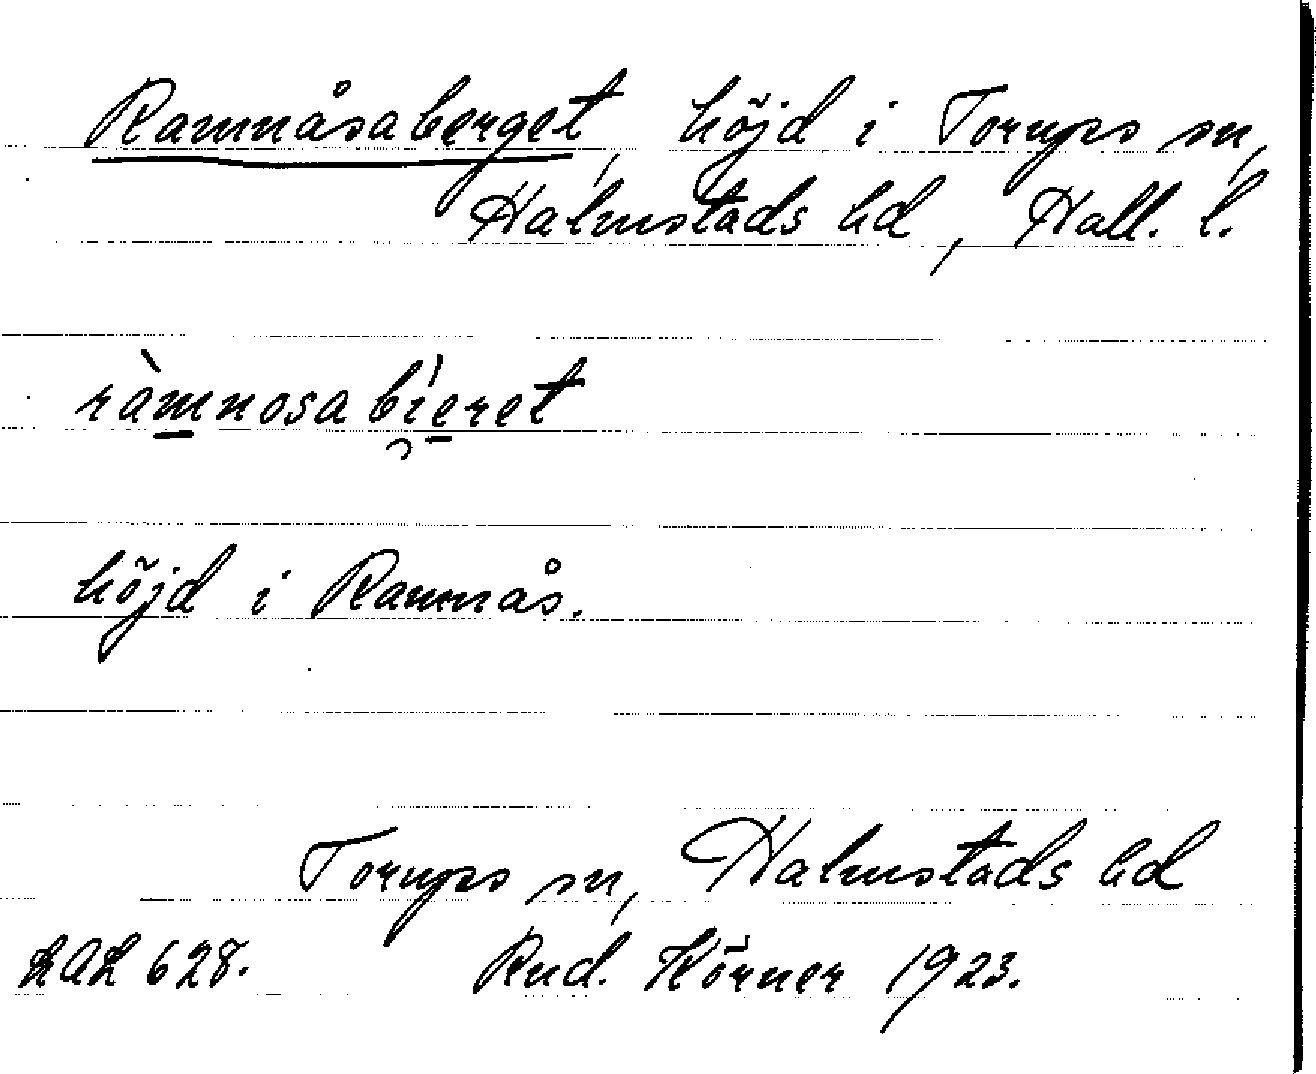 Ramnåsaberget, höjd i Torups sn,
Halmstads hd, Hall. l.
ràmnosabi̯éret
höjd i Ramnås.
Torups sn, Halmstads hd
LAL 628. Rud. Körner 1923.